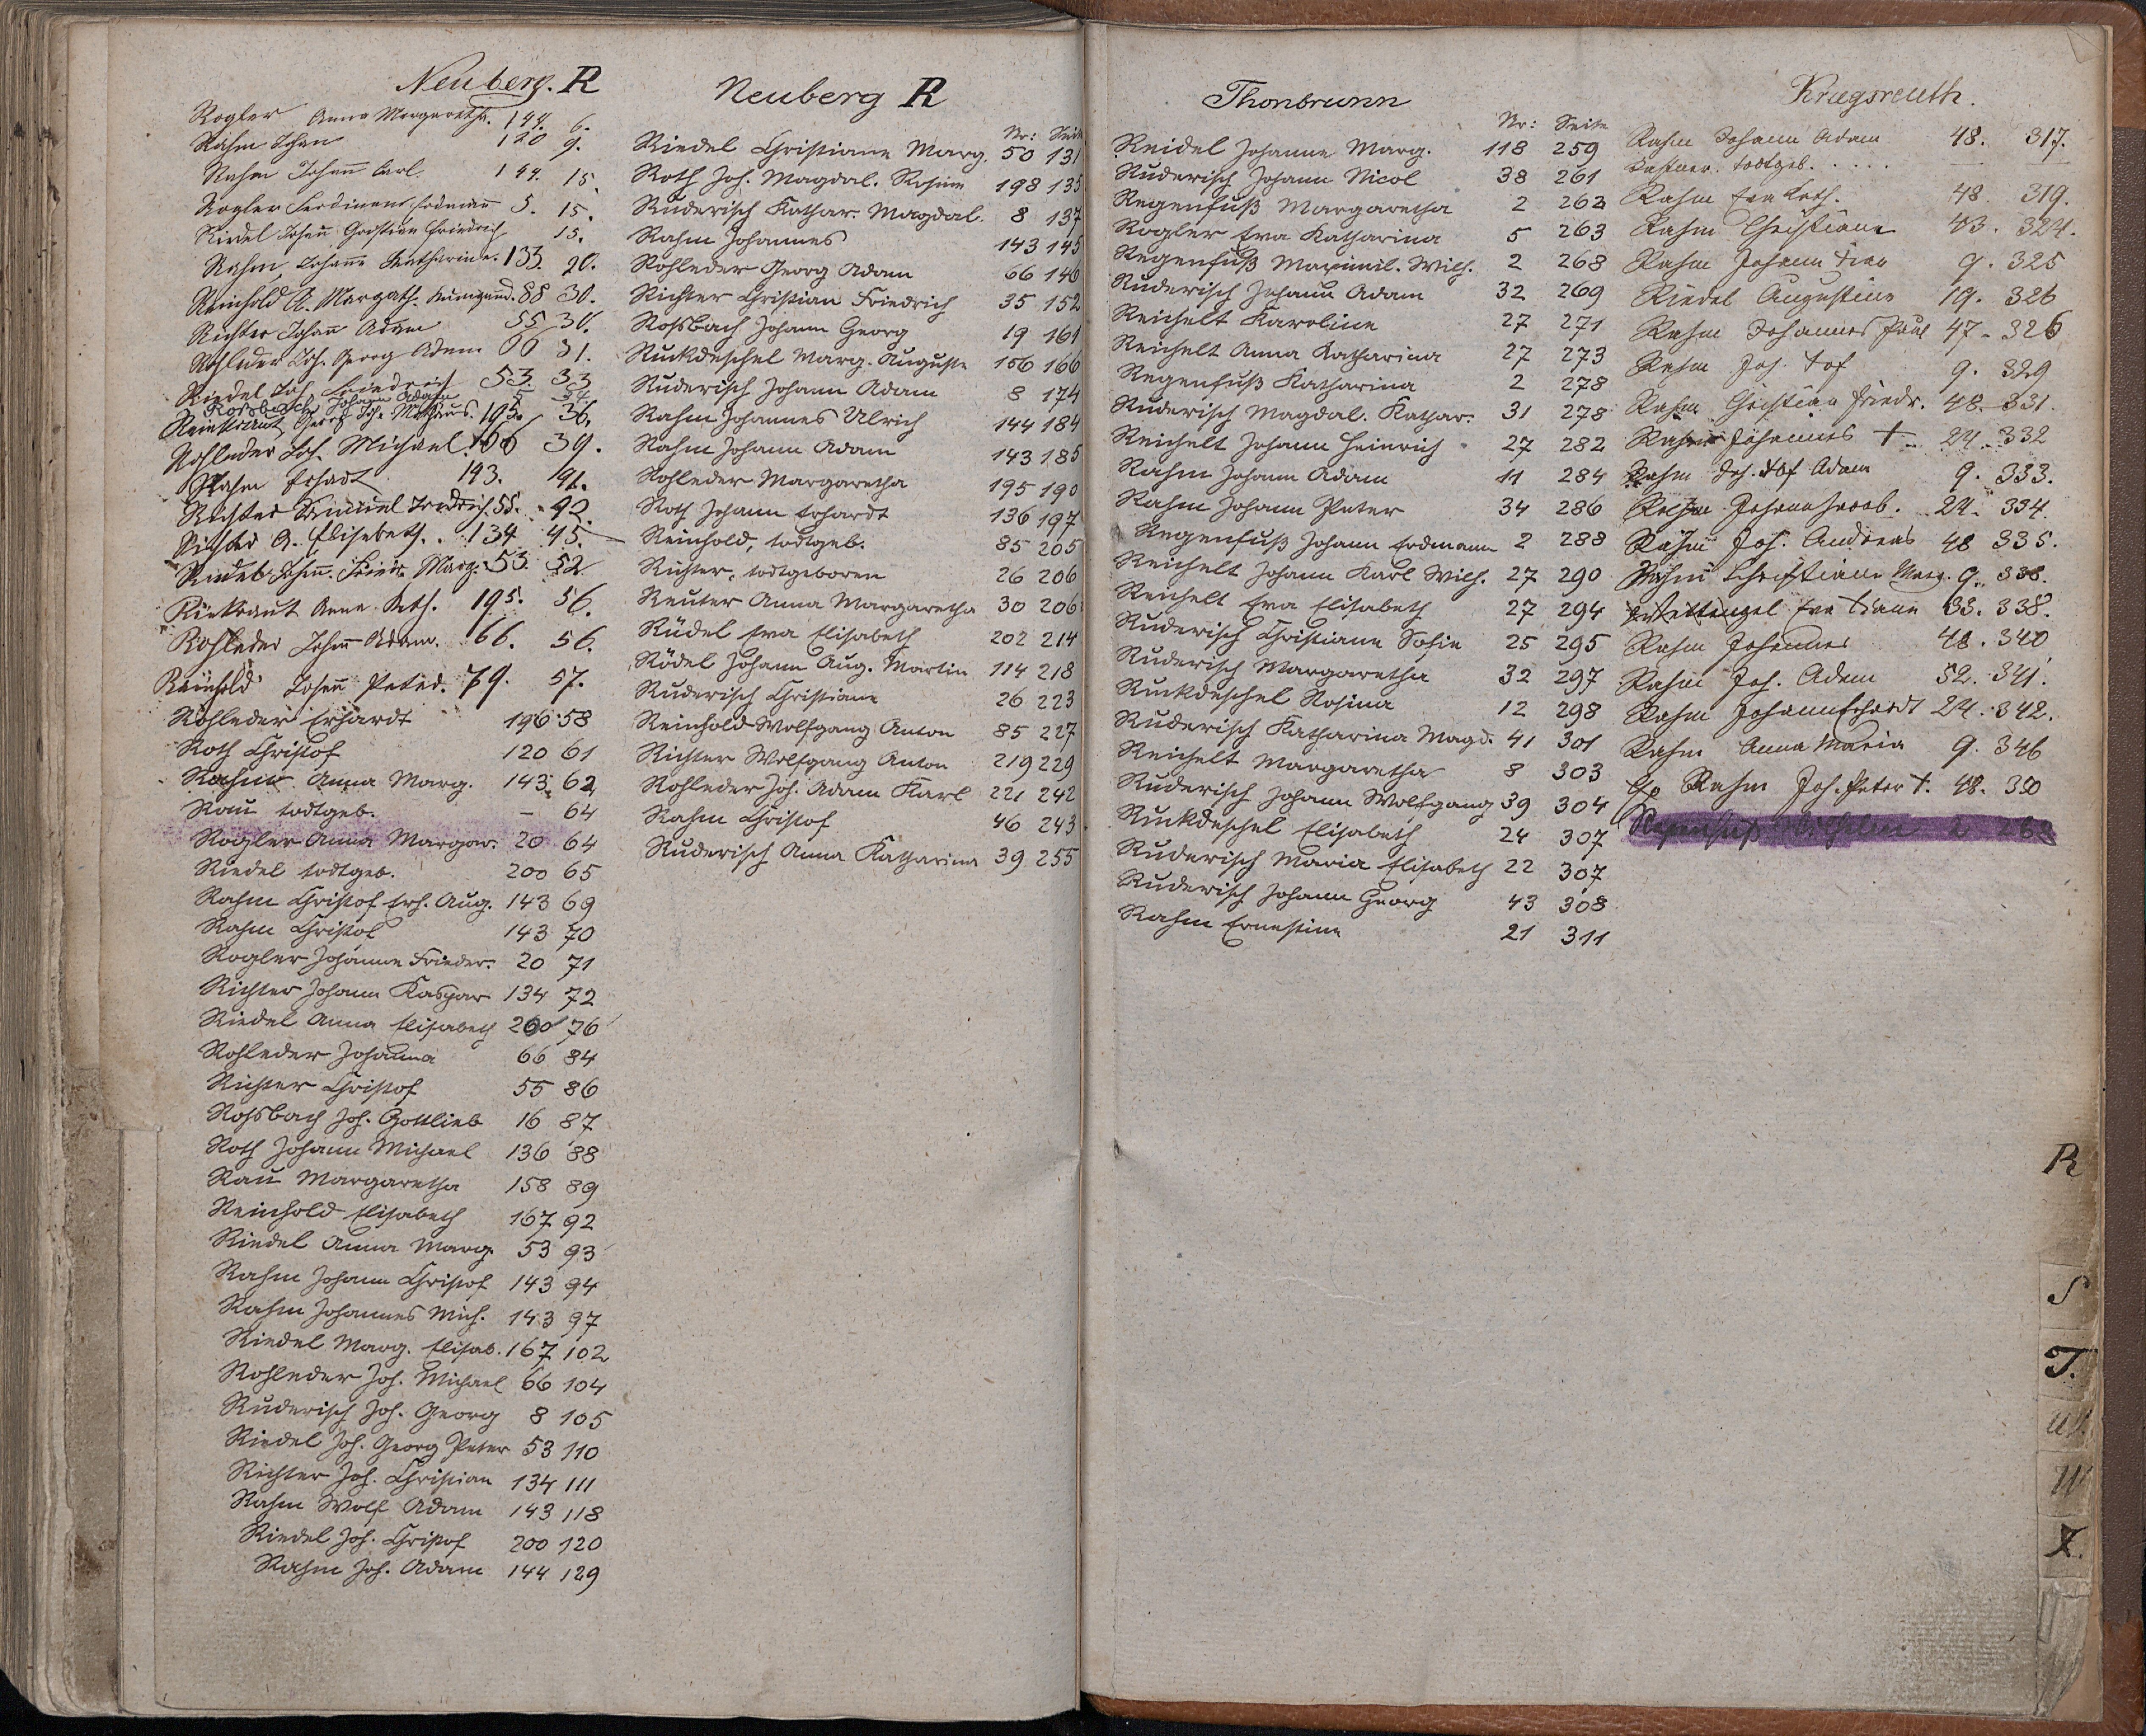 Neuberg. R
Rogler Anna Margaretha. 144. 6.
Rahm Johan 120 9.
Rahm Johann Carl. 144. 15.
Rogler Ferdinand Erdmann 5. 15.
Riedel Johann Friedrich 15.
Rahm, Johanne Katharine. 133. 20.
Reinhold A. Margath. Kunigund. 88 30.
Richter Johann Adam 55 30.
Rohleder Joh. Georg Adam 66 31.
Riedel Joh. Friedrich 53. 33
Rossbach Johann Adam 5 34.
Georg Joh. 195. 36.
Rohleder Joh. Michael. 66 39.
Rahm Erhardt 143. 41.
Richter Friedrich. 55. 42.
Richter A. Elisabeth. 134 45.
Riedel Johann. Marg. 53. 52
Anna Kath. 195. 56.
Rohleder Johann Adam. 66. 56.
Reinhold Johann Peter. 79. 57.
Rohleder Erhardt 196 58
Roth Christof 120 61
Rahm Anna Marg. 143 62
Rau todtgeb. — 64
Rogler Anna Margar. 20 64
Riedel todtgeb. 200 65
Rahm Christof Erh. Aug. 143 69
Rahm Christof 143 70
Rogler Johanna Frieder. 20 71
Richter Johann Kaspar 134 72
Riedel Anna Elisabeth 200 76
Rohleder Johanna 66 84
Richter Christof 55 86
Rossbach Joh. Gottlieb 16 87
Roth Johann Michael 136 88
Rau Margaretha 158 89
Reinhold Elisabeth 167 92
Riedel Anna Marg. 53 93
Rahm Johann Christof 143 94
Rahm Johannes Mich. 143 97
Riedel Marg. Elisab. 167 102
Rohleder Joh. Michael 66 104
Ruderisch Joh. Georg 8 105
Riedel Joh. Georg Peter 53 110
Richter Joh. Christian 134 111
Rahm Wolf Adam 143 118
Riedel Joh. Christof 200 120
Rahm Joh. Adam 144 129
Neuberg R
Nr: Seite
Riedel Christiane Marg. 50 131
Roth Joh. Magdal. Rosine 198 135
Ruderisch Kathar. Magdal. 8 137
Rahm Johannes 143 145
Rohleder Georg Adam 66 146
Richter Christian Friedrich 35 152
Rossbach Johann Georg 19 161
Ruckdeschel Marg. Auguste 156 166
Ruderisch Johann Adam 8 174
Rahm Johannes Ulrich 144 184
Rahm Johann Adam 143 185
Rohleder Margaretha 195 190
Roth Johann Erhardt 136 197
Reinhold, todtgeb. 85 205
Richter, todtgeboren 26 206
Reuter Anna Margaretha 30 206
Rüdel Eva Elisabeth 202 214
Rödel Johann Aug. Martin 114 218
Ruderisch Christiane 26 223
Reinhold Wolfgang Anton 85 227
Richter Wolfgang Anton 219 229
Rohleder Joh. Adam Karl 221 242
Rahm Christof 46 243
Ruderisch Anna Katharina 39 255
Thonbrunn
Nr: Seite
Reidel Johanne Marg. 118 259
Ruderisch Johann Nicol 38 261
Regenfuß Margaretha 2 262
Rogler Eva Katharina 5 263
Regenfuß Maximil. Wilh. 2 268
Ruderisch Johann Adam 32 269
Reichelt Karoline 27 271
Reichelt Anna Katharina 27 273
Regenfuß Katharina 2 278
Ruderisch Magdal. Kathar. 31 278
Reichelt Johann Heinrich 27 282
Rahm Johann Adam 11 284
Rahm Johann Peter 34 286
Regenfuß Johann Erdmann 2 288
Reichelt Johann Karl Wilh. 27 290
Reichelt Eva Elisabeth 27 294
Ruderisch Christiane Sofie 25 295
Ruderisch Margaretha 32 297
Ruckdeschel Rosina 12 298
Ruderisch Katharina Magd. 41 301
Reichelt Margaretha 8 303
Ruderisch Johann Wolfgang 39 304
Ruckdeschel Elisabeth 24 307
Ruderisch Maria Elisabeth 22 307
Ruderisch Johann Georg 43 308
Rahm Ernestine 21 311
Krugsreuth.
Rahm Johann Adam 48. 317.
todtgeb.
Rahm Eva Kath. 48. 319.
Rahm Christiane 43. 324.
Rahm Johann 9. 325
Riedel Augustine 19. 326
Rahm Johannes Paul 47 - 326
Rahm Joh. Tof 9. 329
Rahm Christian Friedr. 48. 331.
Rahm Johannes † 24. 332
Rahm Joh. Tof Adam 9. 333.
Rahm Johann Jacob. 24. 334.
Rahm Joh. Andreas 48 335.
Rahm Christiane Marg. 9. 338.
Eva 33. 338.
Rahm Johannes 48. 340
Rahm Joh. Adam 52. 341.
Rahm Johann Erhardt 24. 342.
Rahm Anna Maria 9. 346
Rahm Joh. Peter †. 48. 350
Regenfuß Wilhelm 2 268
R
S
T.
W
Z.